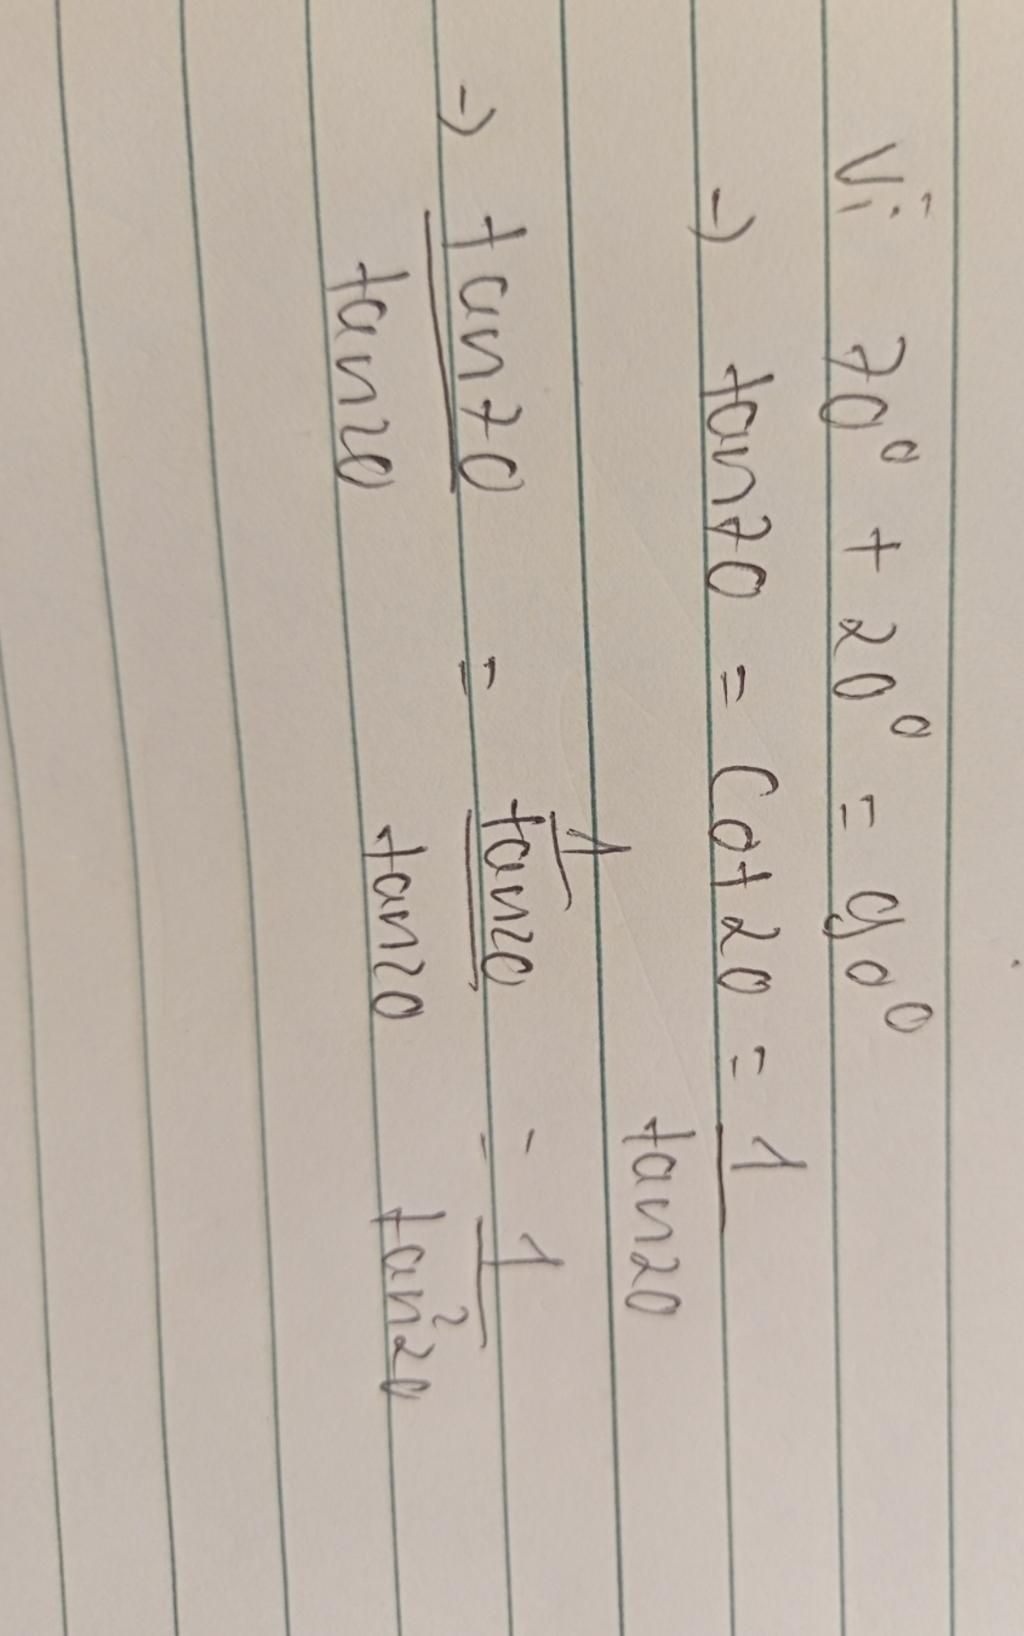 Vì 70° + 20° = 90°
→ tan70 = Cot20 = 1/tan20
→ tan70/tan20 = (1/tan20)/tan20 = 1/tan²20